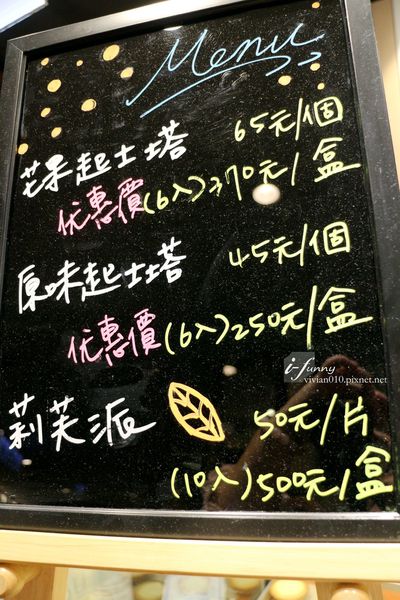 Menu
芒果起士塔 65元/個
优惠價(6入)370元/盒
原味起士塔 45元/個
优惠價(6入)250元/盒
莉芙派 50元/片
(10入)500元/盒
i-funny
vivian010.pixnet.net